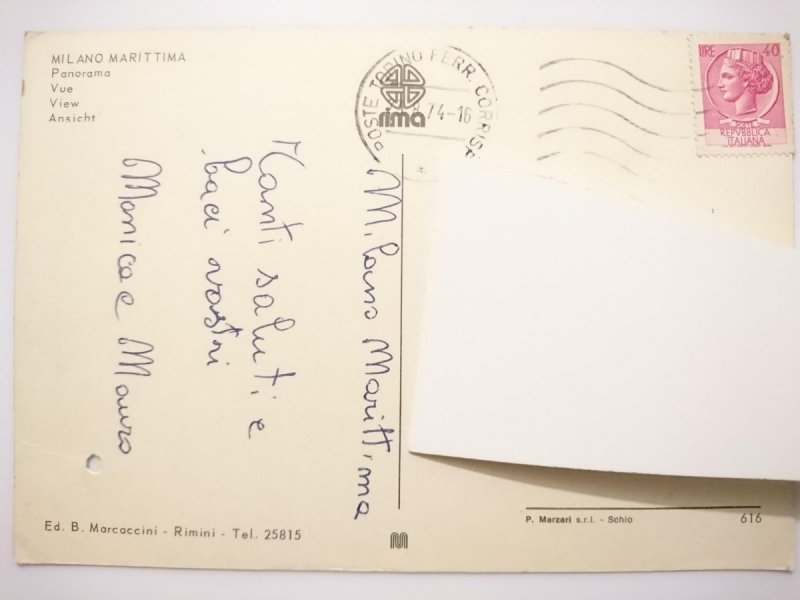 MILANO MARITTIMA
Panorama
Vue
View
Ansicht
POSTE TORINO FERR. CORRISP
74-16
rima
LIRE 40
POSTE
REPVBBLICA
ITALIANA
Milano Marittima
Tanti saluti e
baci vostri
Monica e Mauro
Ed. B. Marcaccini - Rimini - Tel. 25815
P. Marzari s.r.l. - Schio
616